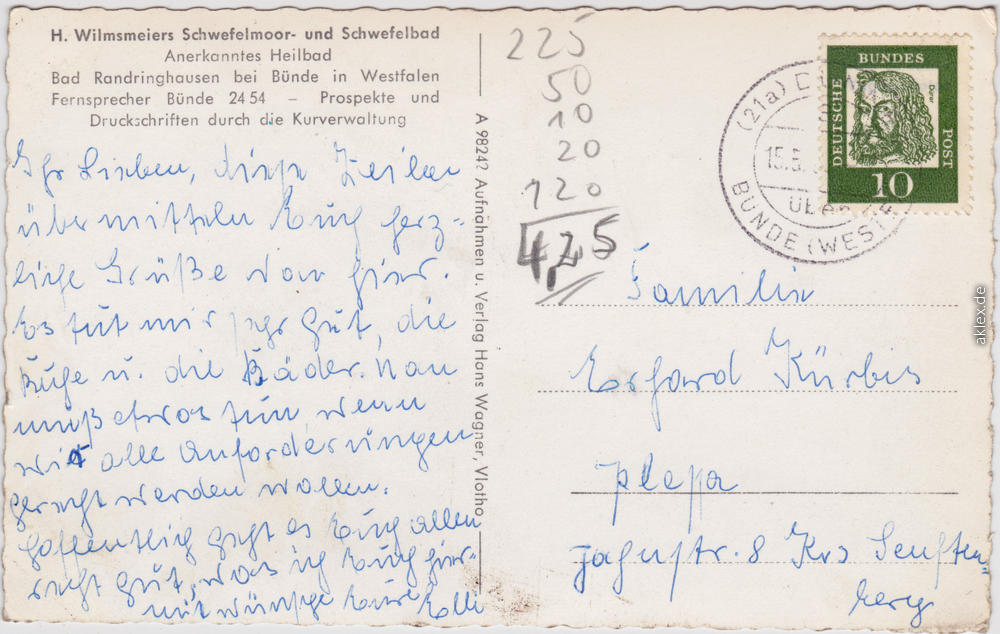 H. Wilmsmeiers Schwefelmoor- und Schwefelbad
Anerkanntes Heilbad
Bad Randringhausen bei Bünde in Westfalen
Fernsprecher Bünde 2454 – Prospekte und
Druckschriften durch die Kurverwaltung
Ihr Lieben, diese Zeilen
übermitteln Euch herz-
liche Grüße von hier.
Es tut mir sehr gut, die
Ruhe u. die Bäder. Man
muß etwas tun, wenn
wir alle Anforderungen
gerecht werden wollen.
Hoffentlich geht es Euch allen
recht gut, was ich Euch hier-
mit wünsche Eure Elli
A 98242 Aufnahmen u. Verlag Hans Wagner, Vlotho
225
50
10
20
120
4,25
(21a)
15.5.
über
BÜNDE (WESTF
DEUTSCHE BUNDESPOST
Dürer
10
Familie
Erhard Kürbis
Plessa
Jahnstr. 8 Krs Senften-
berg
aklex.de